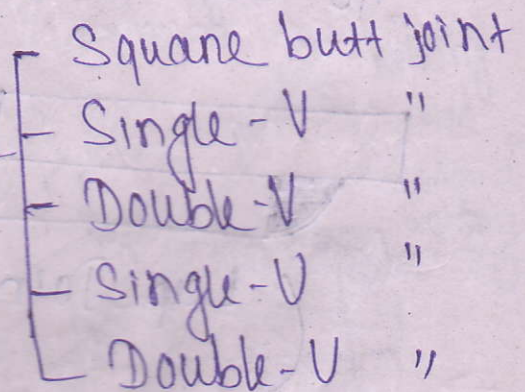 Square butt joint
Single-V "
Double-V "
Single-U "
Double-U "